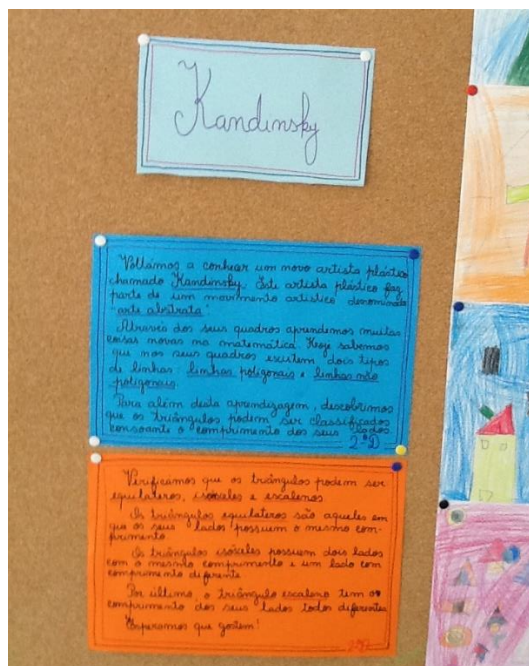 Kandinsky
Voltámos a conhecer um novo artista plástico
chamado Kandinsky. Este artista plástico faz
parte de um movimento artístico denominado
arte abstrata.
Através dos seus quadros aprendemos muitas
coisas novas na matemática. Hoje sabemos
que nos seus quadros existem dois tipos
de linhas: linhas poligonais e linhas não
poligonais.
Para além desta aprendizagem, descobrimos
que os triângulos podem ser classificados
consoante o comprimento dos seus lados.
2ºD
Verificámos que os triângulos podem ser
equiláteros, isósceles e escalenos.
Os triângulos equiláteros são aqueles em
que os seus lados possuem o mesmo com-
primento.
Os triângulos isósceles possuem dois lados
com o mesmo comprimento e um lado com
comprimento diferente.
Por último, o triângulo escaleno tem os
comprimento dos seus lados todos diferentes.
Esperamos que gostem!
2ºD